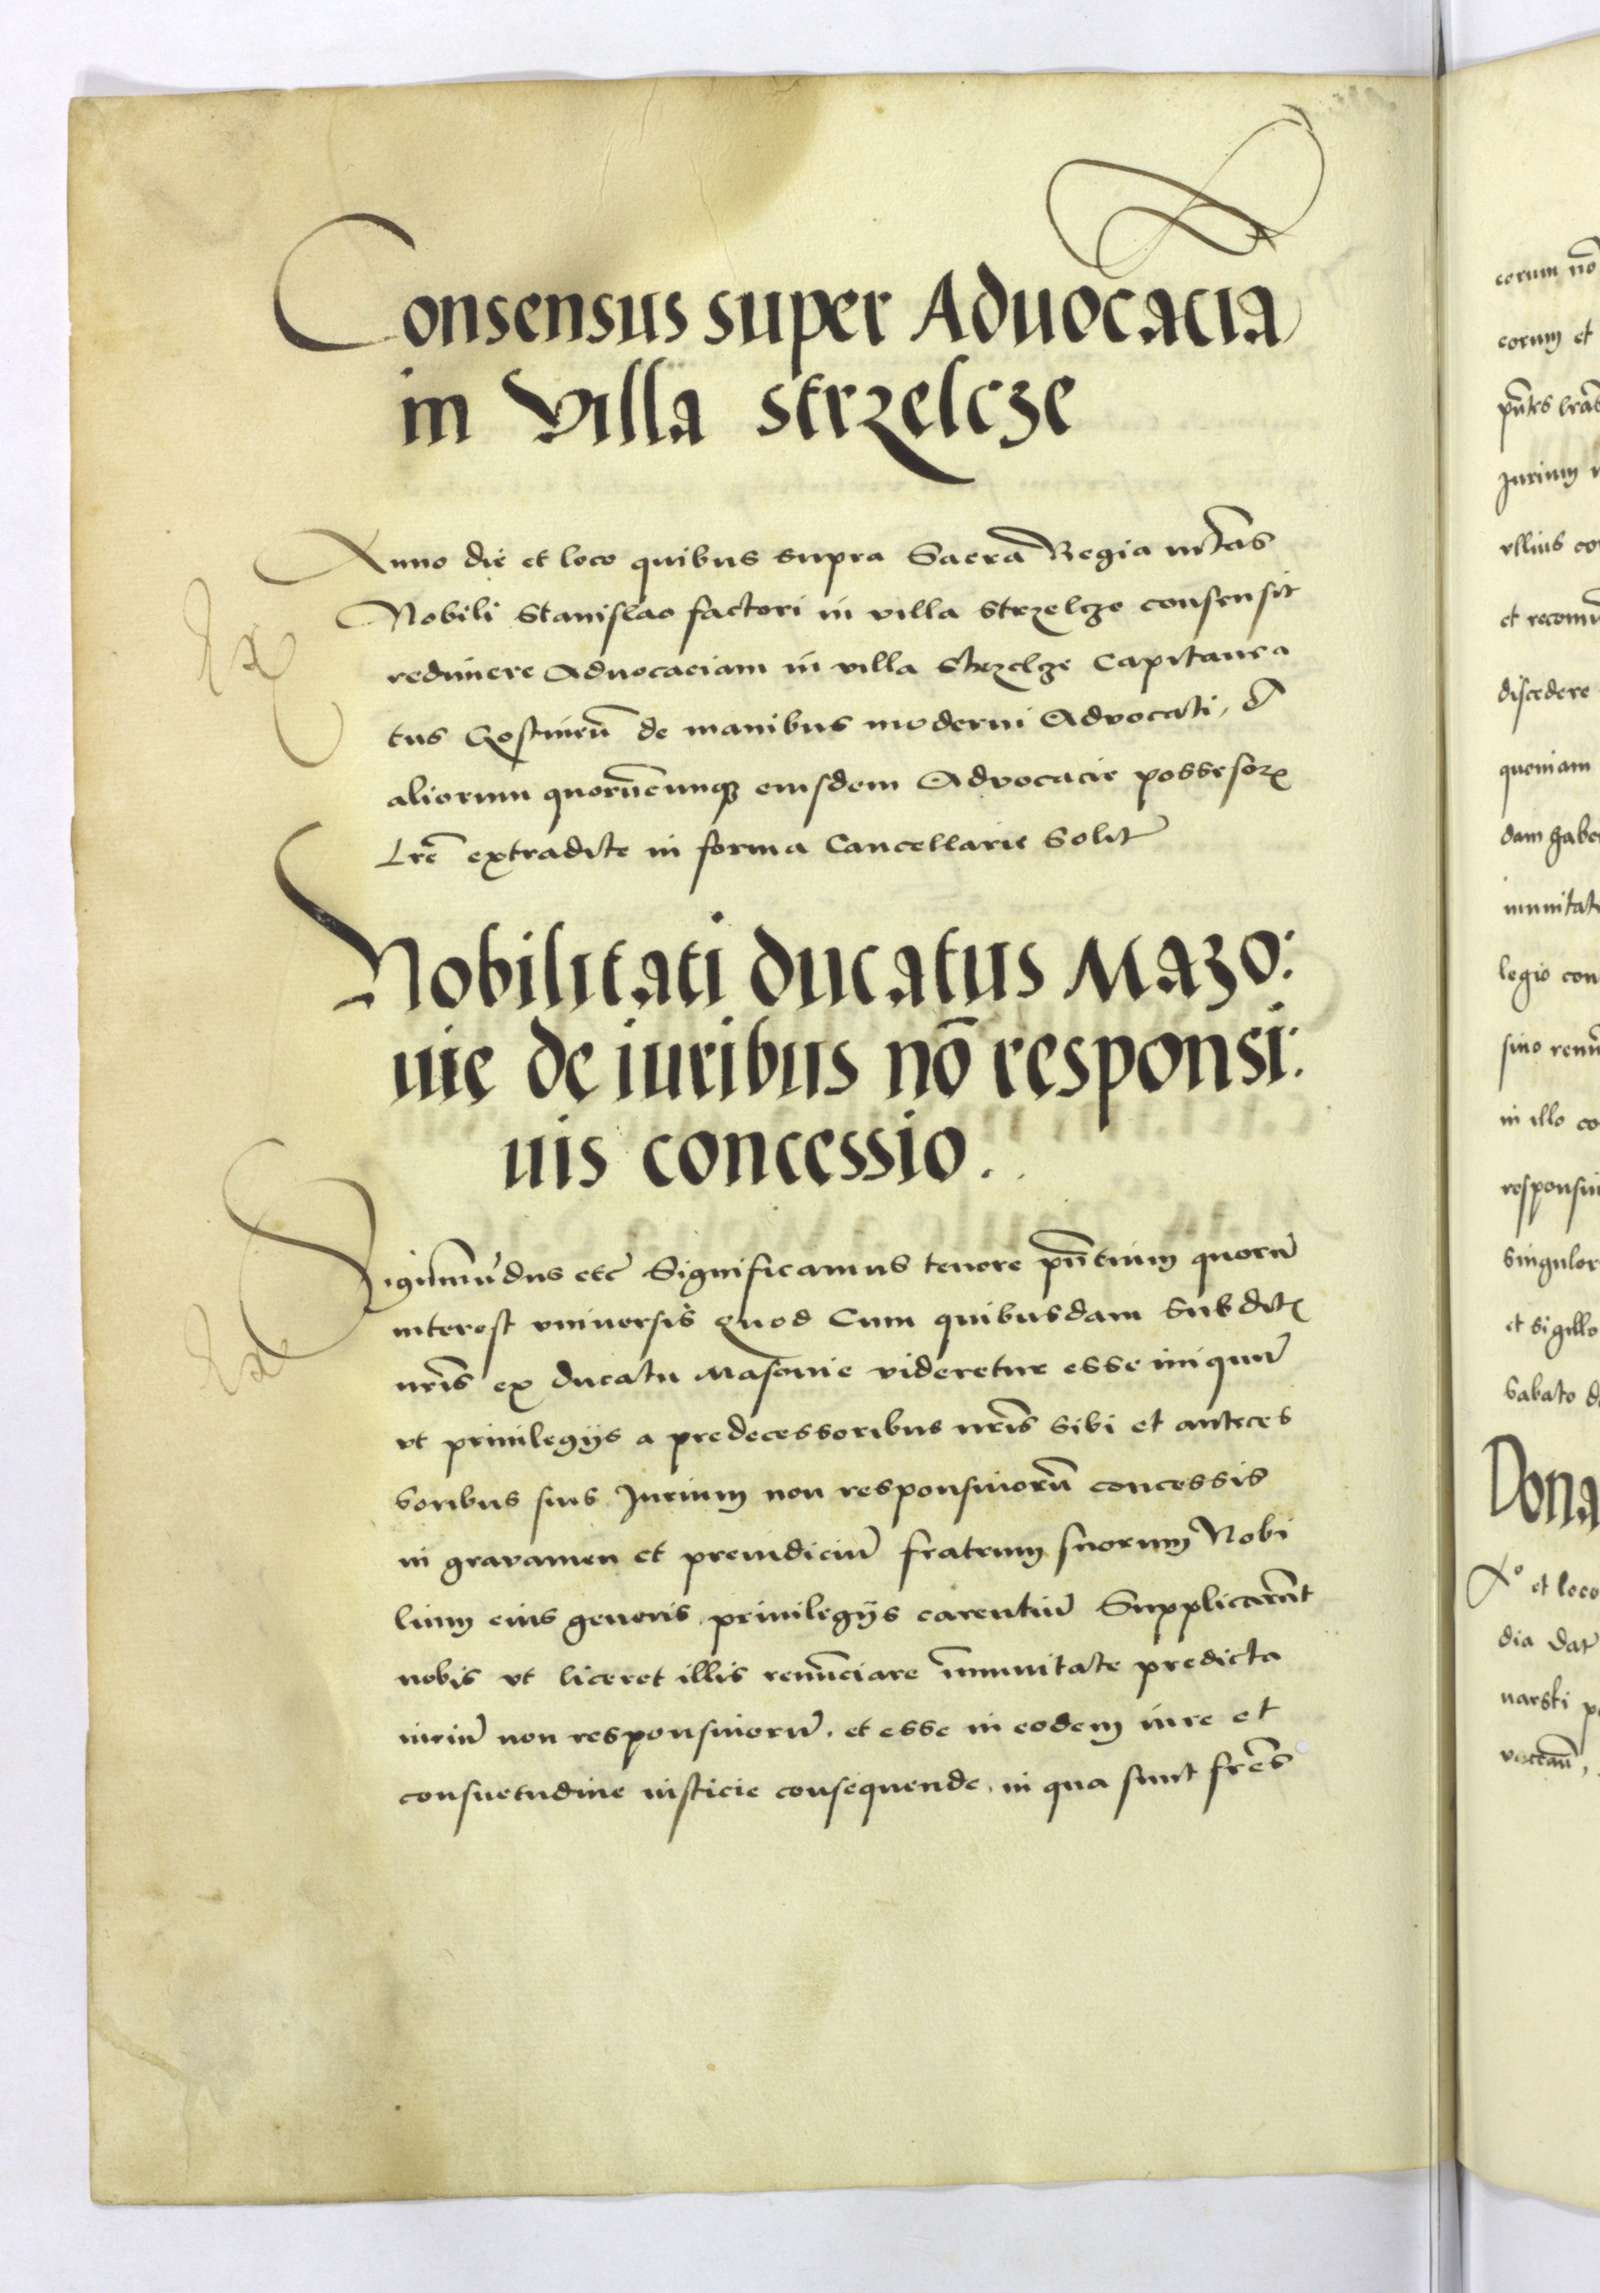 Consensus super Aduocacia
in Villa Strzelcze
Anno die et loco quibus supra Sacra Regia mtas
Nobili Stanislao factori in villa Strzelcze consensit
redimere Aduocaciam in villa Strzelcze Capitanea
tus Gostinen̄ de manibus moderni Advocati,
aliorum quorūcunq3 eiusdem Advocacie possessorꝝ
Lr̄e extradite in forma Cancellarie Solit
Nobilitati ducatus Mazo:
uię de iuribus nō responsi:
uis concessio.
Sigismūdus etc̄ Significamus tenore pn̄tium quorū
interest vniuersis Quod Cum quibusdam Subditꝭ
nrīs ex ducatu Masouie videretur esse iniquū
vt priuilegijs a predecessoribus nrīs sibi et anteces
soribus suis Jurium non responsiuorū concessis
in gravamen et preiudiciū fratrum suorum Nobi
lium eius generis priuilegijs carentiū Supplicarūt
nobis vt liceret illis renūciare īmunitate predicta
iuriū non responsiuorū, et esse in eodem iure et
consuetudine iusticie consequende, in qua sunt frēs
corum nō
eorum et
pn̄tes lrās
Jurium
vllius
discedere
quoniam
legio con
in illo co
et sigillo
Sabato
Dona
Aº et loco
dia dat